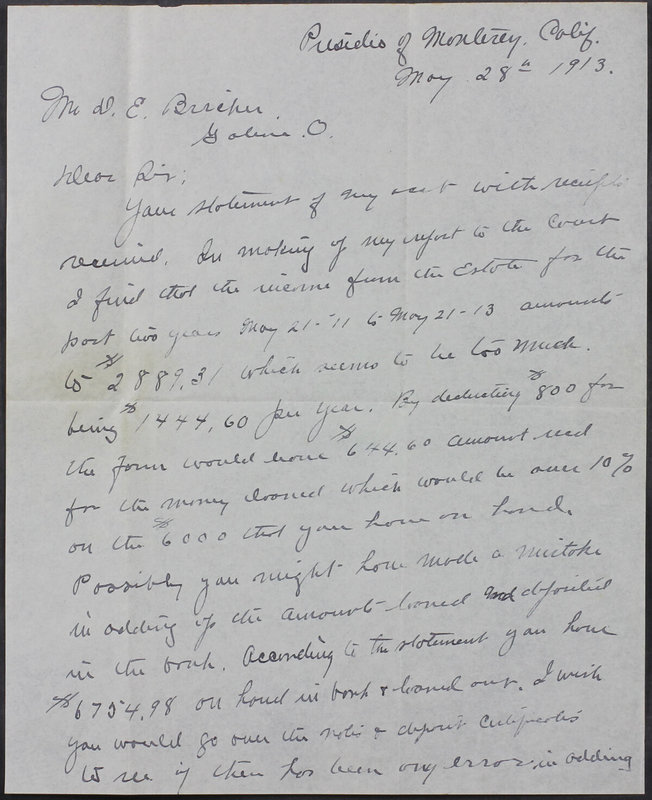 Presidio of Monterey, Calif.
May 28th 1913.
Mr D. E. Bricher
Galena. O.
Dear Sir;
Your statement of my acct with receipts
received. In making of my report to the Court
I find that the income from the Estate for the
past two years May 21-'11 to May 21-13 amounts
to $2889.31 which seems to be too much.
being $1444.60 per year. By deducting $800 for
the farm would leave $644.60 amount recd
for the money loaned which would be over 10%
on the $6000 that you have on hand.
Possibly you might have made a mistake
in adding up the amounts loaned and deposited
in the bank. According to the statement you have
$6754.98 on hand in bank & loaned out. I wish
you would go over the notes & deposit certificates
to see if there has been any error in adding